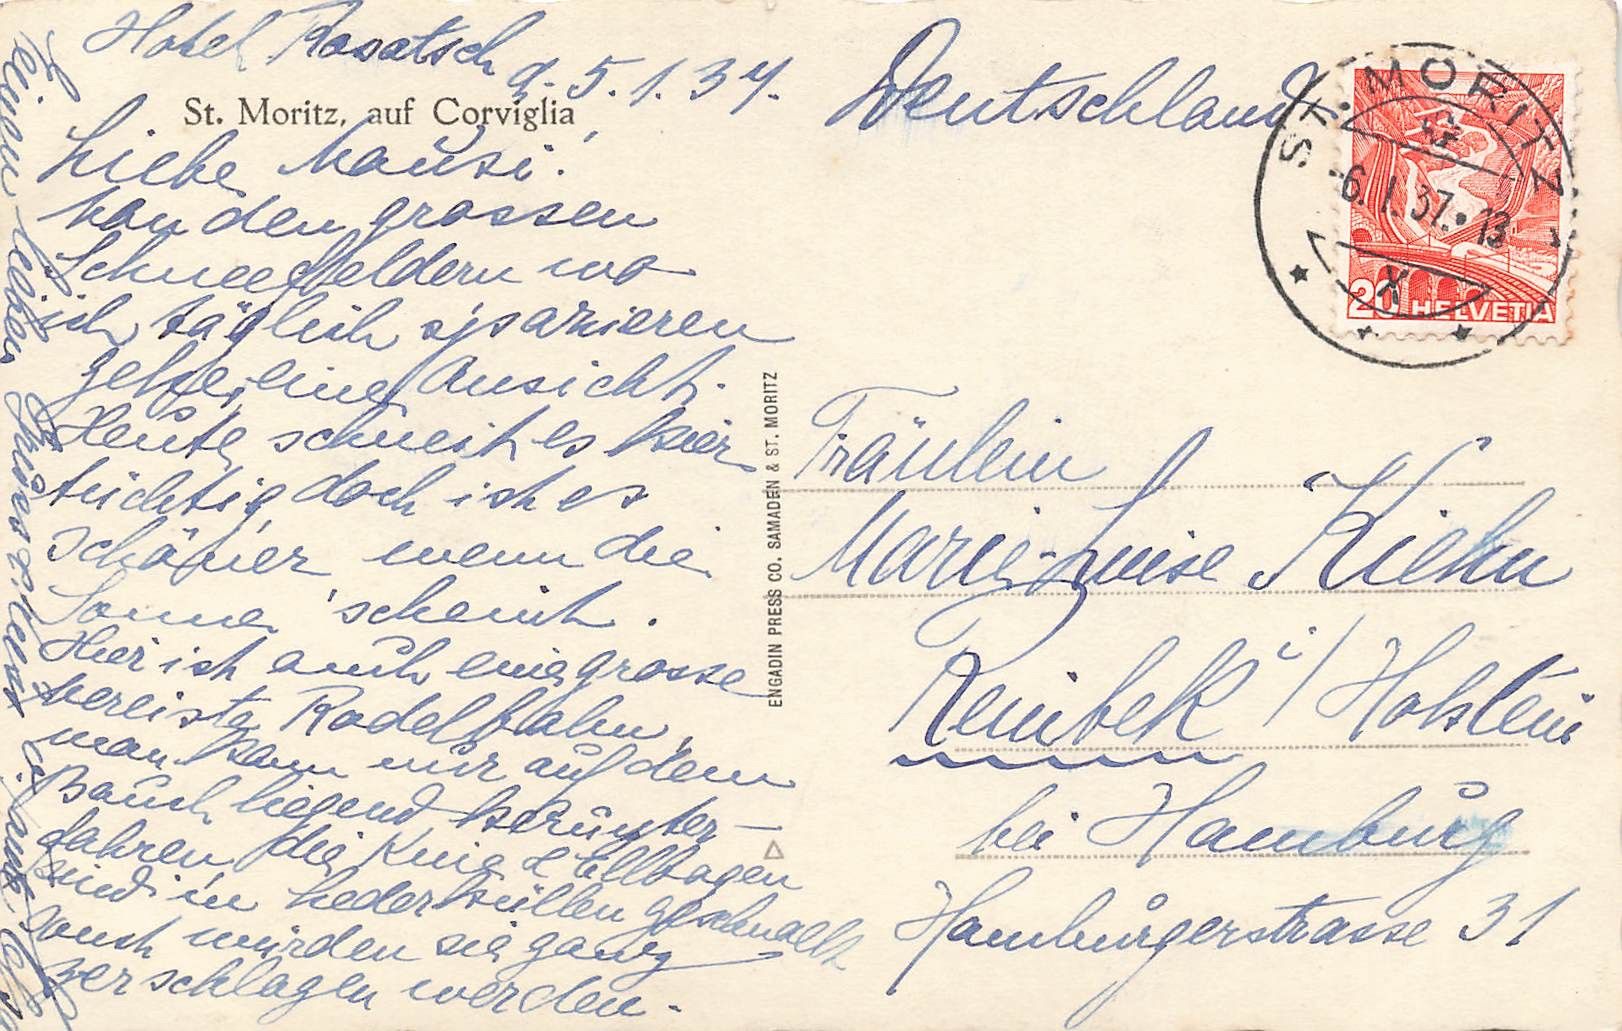 Hotel Rosatsch d. 5.1.37.
St. Moritz, auf Corviglia
Liebe Mausi!
Von den grossen
Schneefeldern wo
ich täglich spazieren
gehe, eine Ansicht.
Heute schneit es hier
tüchtig, doch ist es
schöner wenn die
Sonne scheint.
Hier ist auch eine grosse
vereiste Rodelbahn,
man kann nur auf dem
Bauch liegend herunter-
fahren, die Knie & Ellbogen
sind in Lederhüllen geschnallt
sonst würden sie ganz
zerschlagen werden.
Deutschland
ST. MORITZ
6.1.37.13
X
20 HELVETIA
ENGADIN PRESS CO. SAMADEN & ST. MORITZ
Fräulein
Marie-Luise Kiehn
Reinbek i/ Holstein
bei Hamburg
Hamburgerstrasse 31